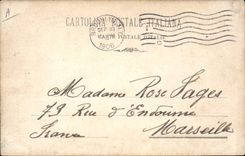 A
CARTOLINA POSTALE ITALIANA
SEP
1906
(CARTE POSTALE D'ITALIE)
Madame Rose Fages
79 Rue d'Endoume
France Marseille